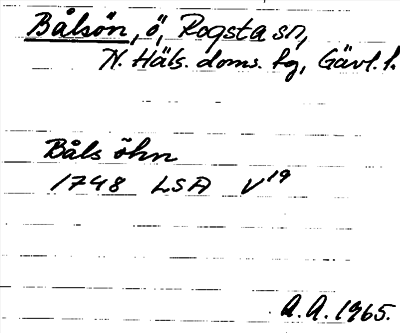 Bålsön, ö, Rogsta sn,
N. Häls. doms. hg, Gävl. l.
Båls öhn
1748 LSA V¹⁹
A.A. 1965.